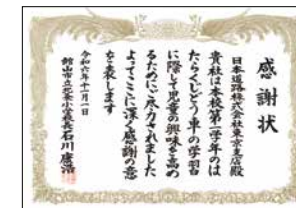 感謝状
日本道路株式会社東京支店殿
貴社は本校第二学年のは
たらくじどう車の学習
に際して児童の興味を高め
るためにご尽力されました
よってここに深く感謝の意
を表します
令和六年十一月一日
館山市立北条小学校長石川康浩